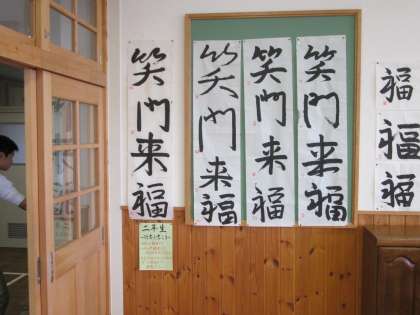 笑門来福
笑門来福
笑門来福
笑門来福
福
福
福
二年生